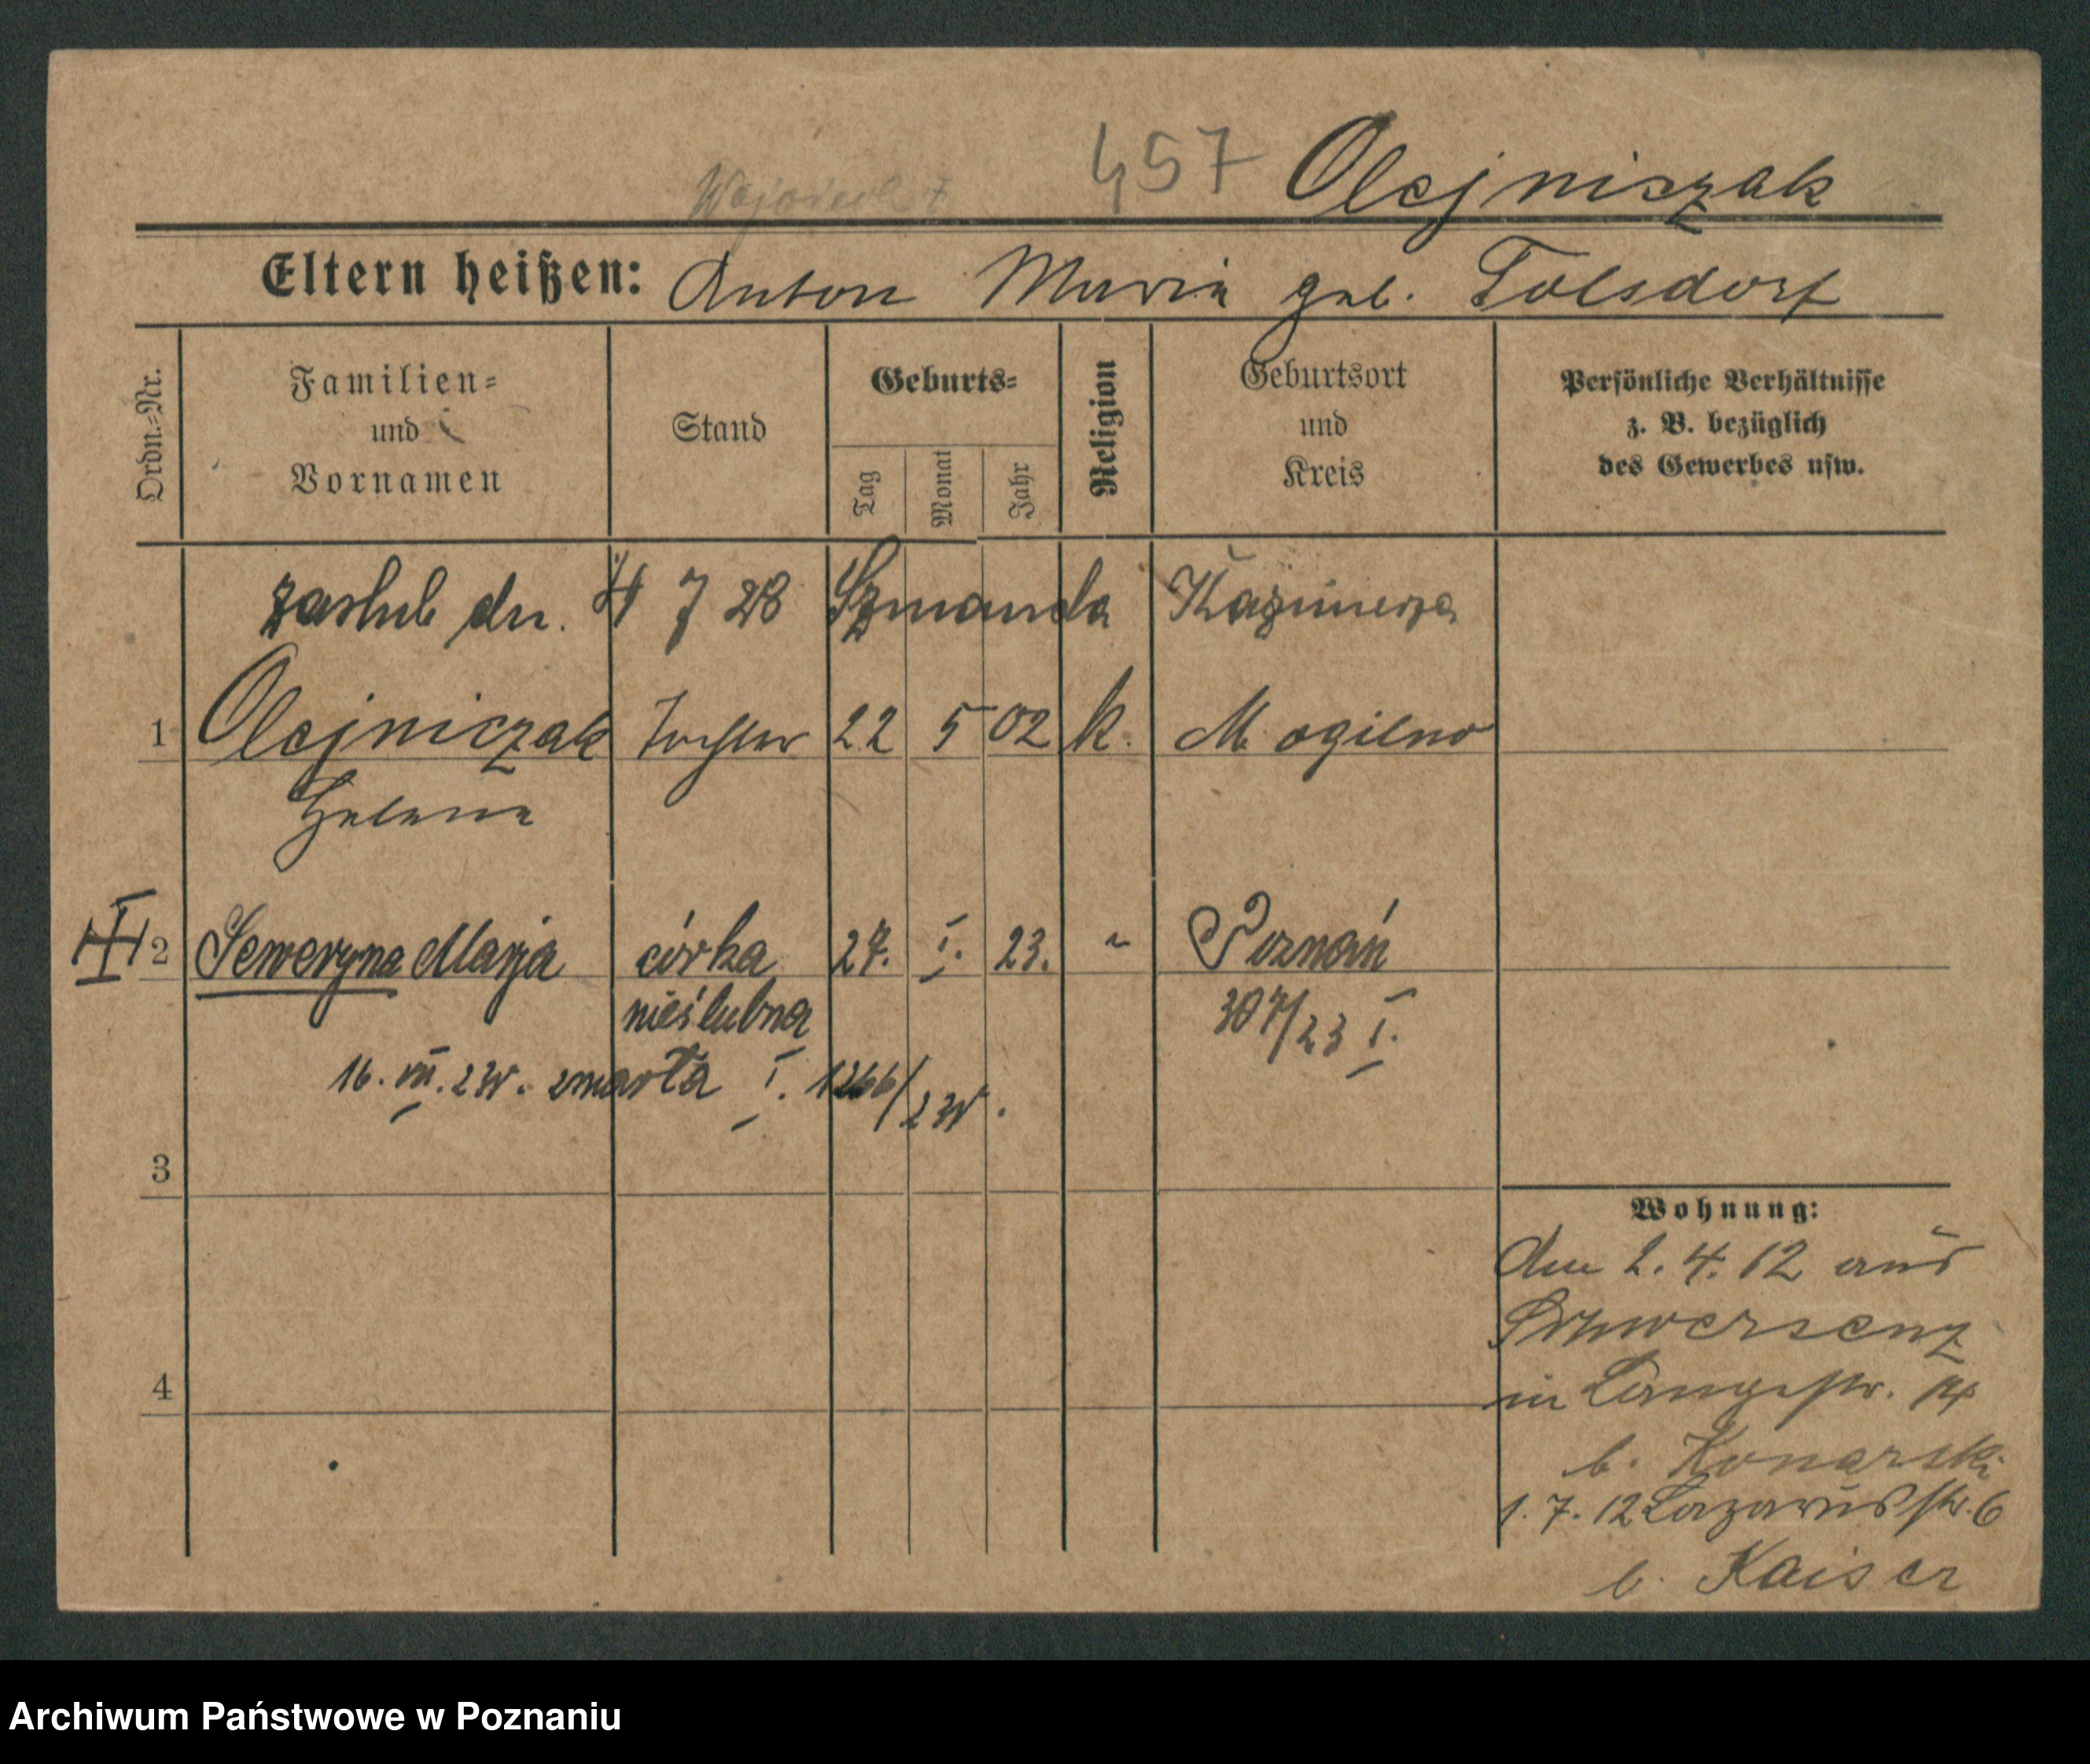 457 Olejniczak
Eltern heißen: Anton Maria geb. Tolsdorf
Ordn.-Nr.
Familien-
und
Vornamen
Stand
Geburts-
Tag
Monat
Jahr
Religion
Geburtsort
und
Kreis
Persönliche Verhältnisse
z. B. bezüglich
des Gewerbes usw.
zaślub dn. 7 28 Szmanda Kazimierza
1 Olejniczak Tochter 22 5 02 k. Mogilno
Helena
2 Seweryna Marja córka 27. I. 23. " Poznań
nieślubna 307/23 I.
16. VII. 23r. zmarła I. 1266/23r.
3
4
Wohnung:
den 2. 4. 12 aus
Schwersenz
in Langestr. 14
b. Konarski
1. 7. 12 Lazarusstr. 6
b. Kaiser
Archiwum Państwowe w Poznaniu